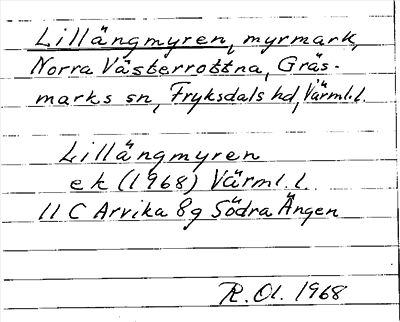 Lillängmyren, myrmark,
Norra Västerrottna, Gräs-
marks sn, Fryksdals hd, Värml.l.
Lillängmyren
ek (1968) Värml.l.
11 C Arvika 8g Södra Ängen
R. Ol. 1968